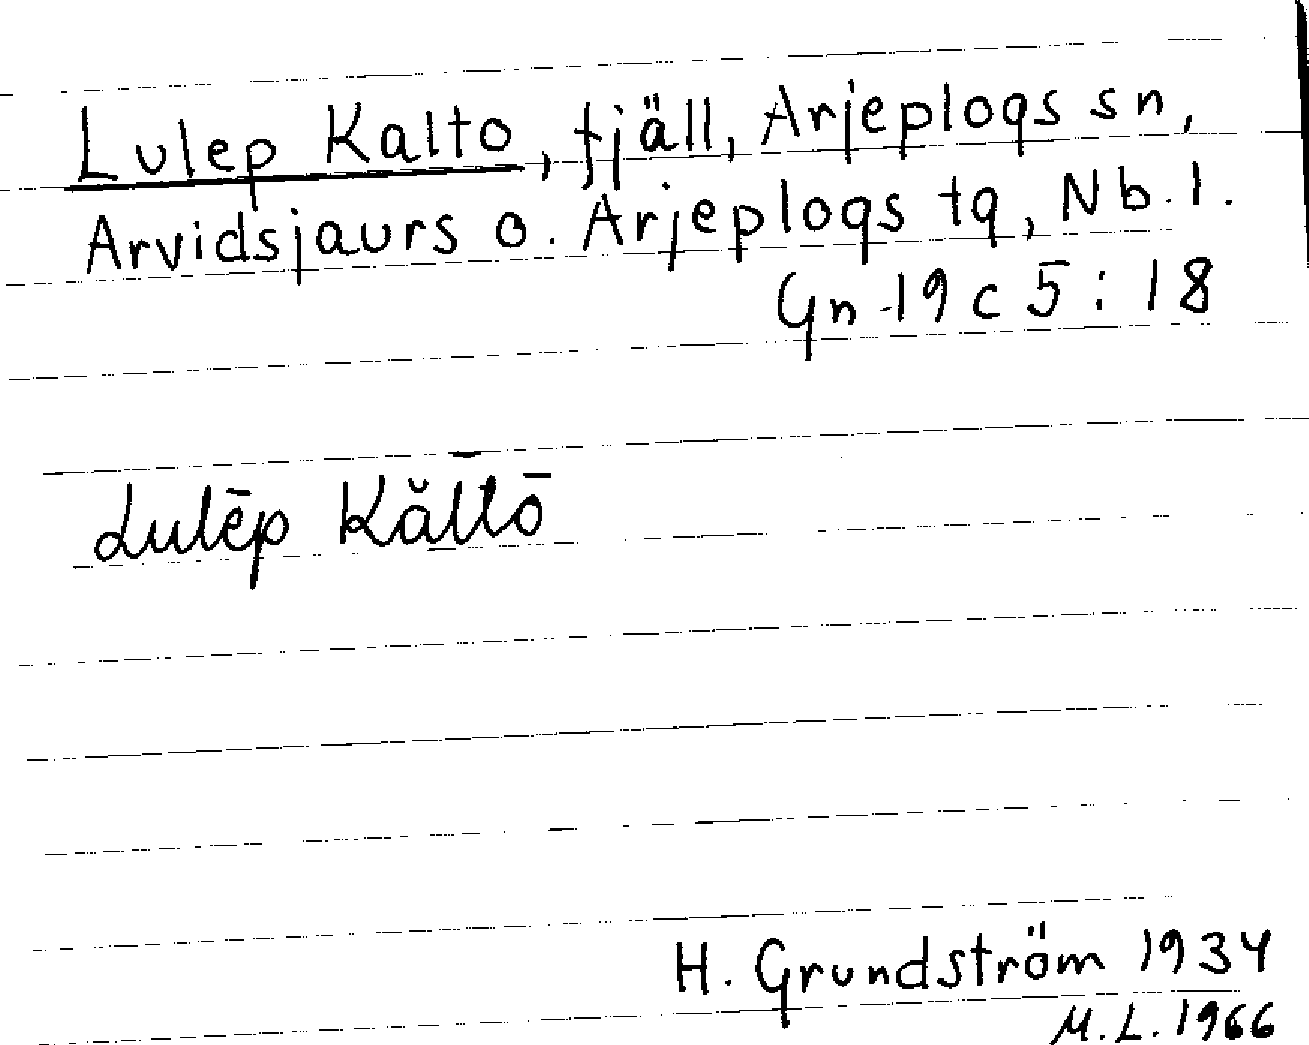 Lulep Kalto, fjäll, Arjeplogs sn,
Arvidsjaurs o. Arjeplogs tg, Nb. l.
Gn 19 c 5 : 18
Lulēp Kăl̄tō
H. Grundström 1934
M.L. 1966